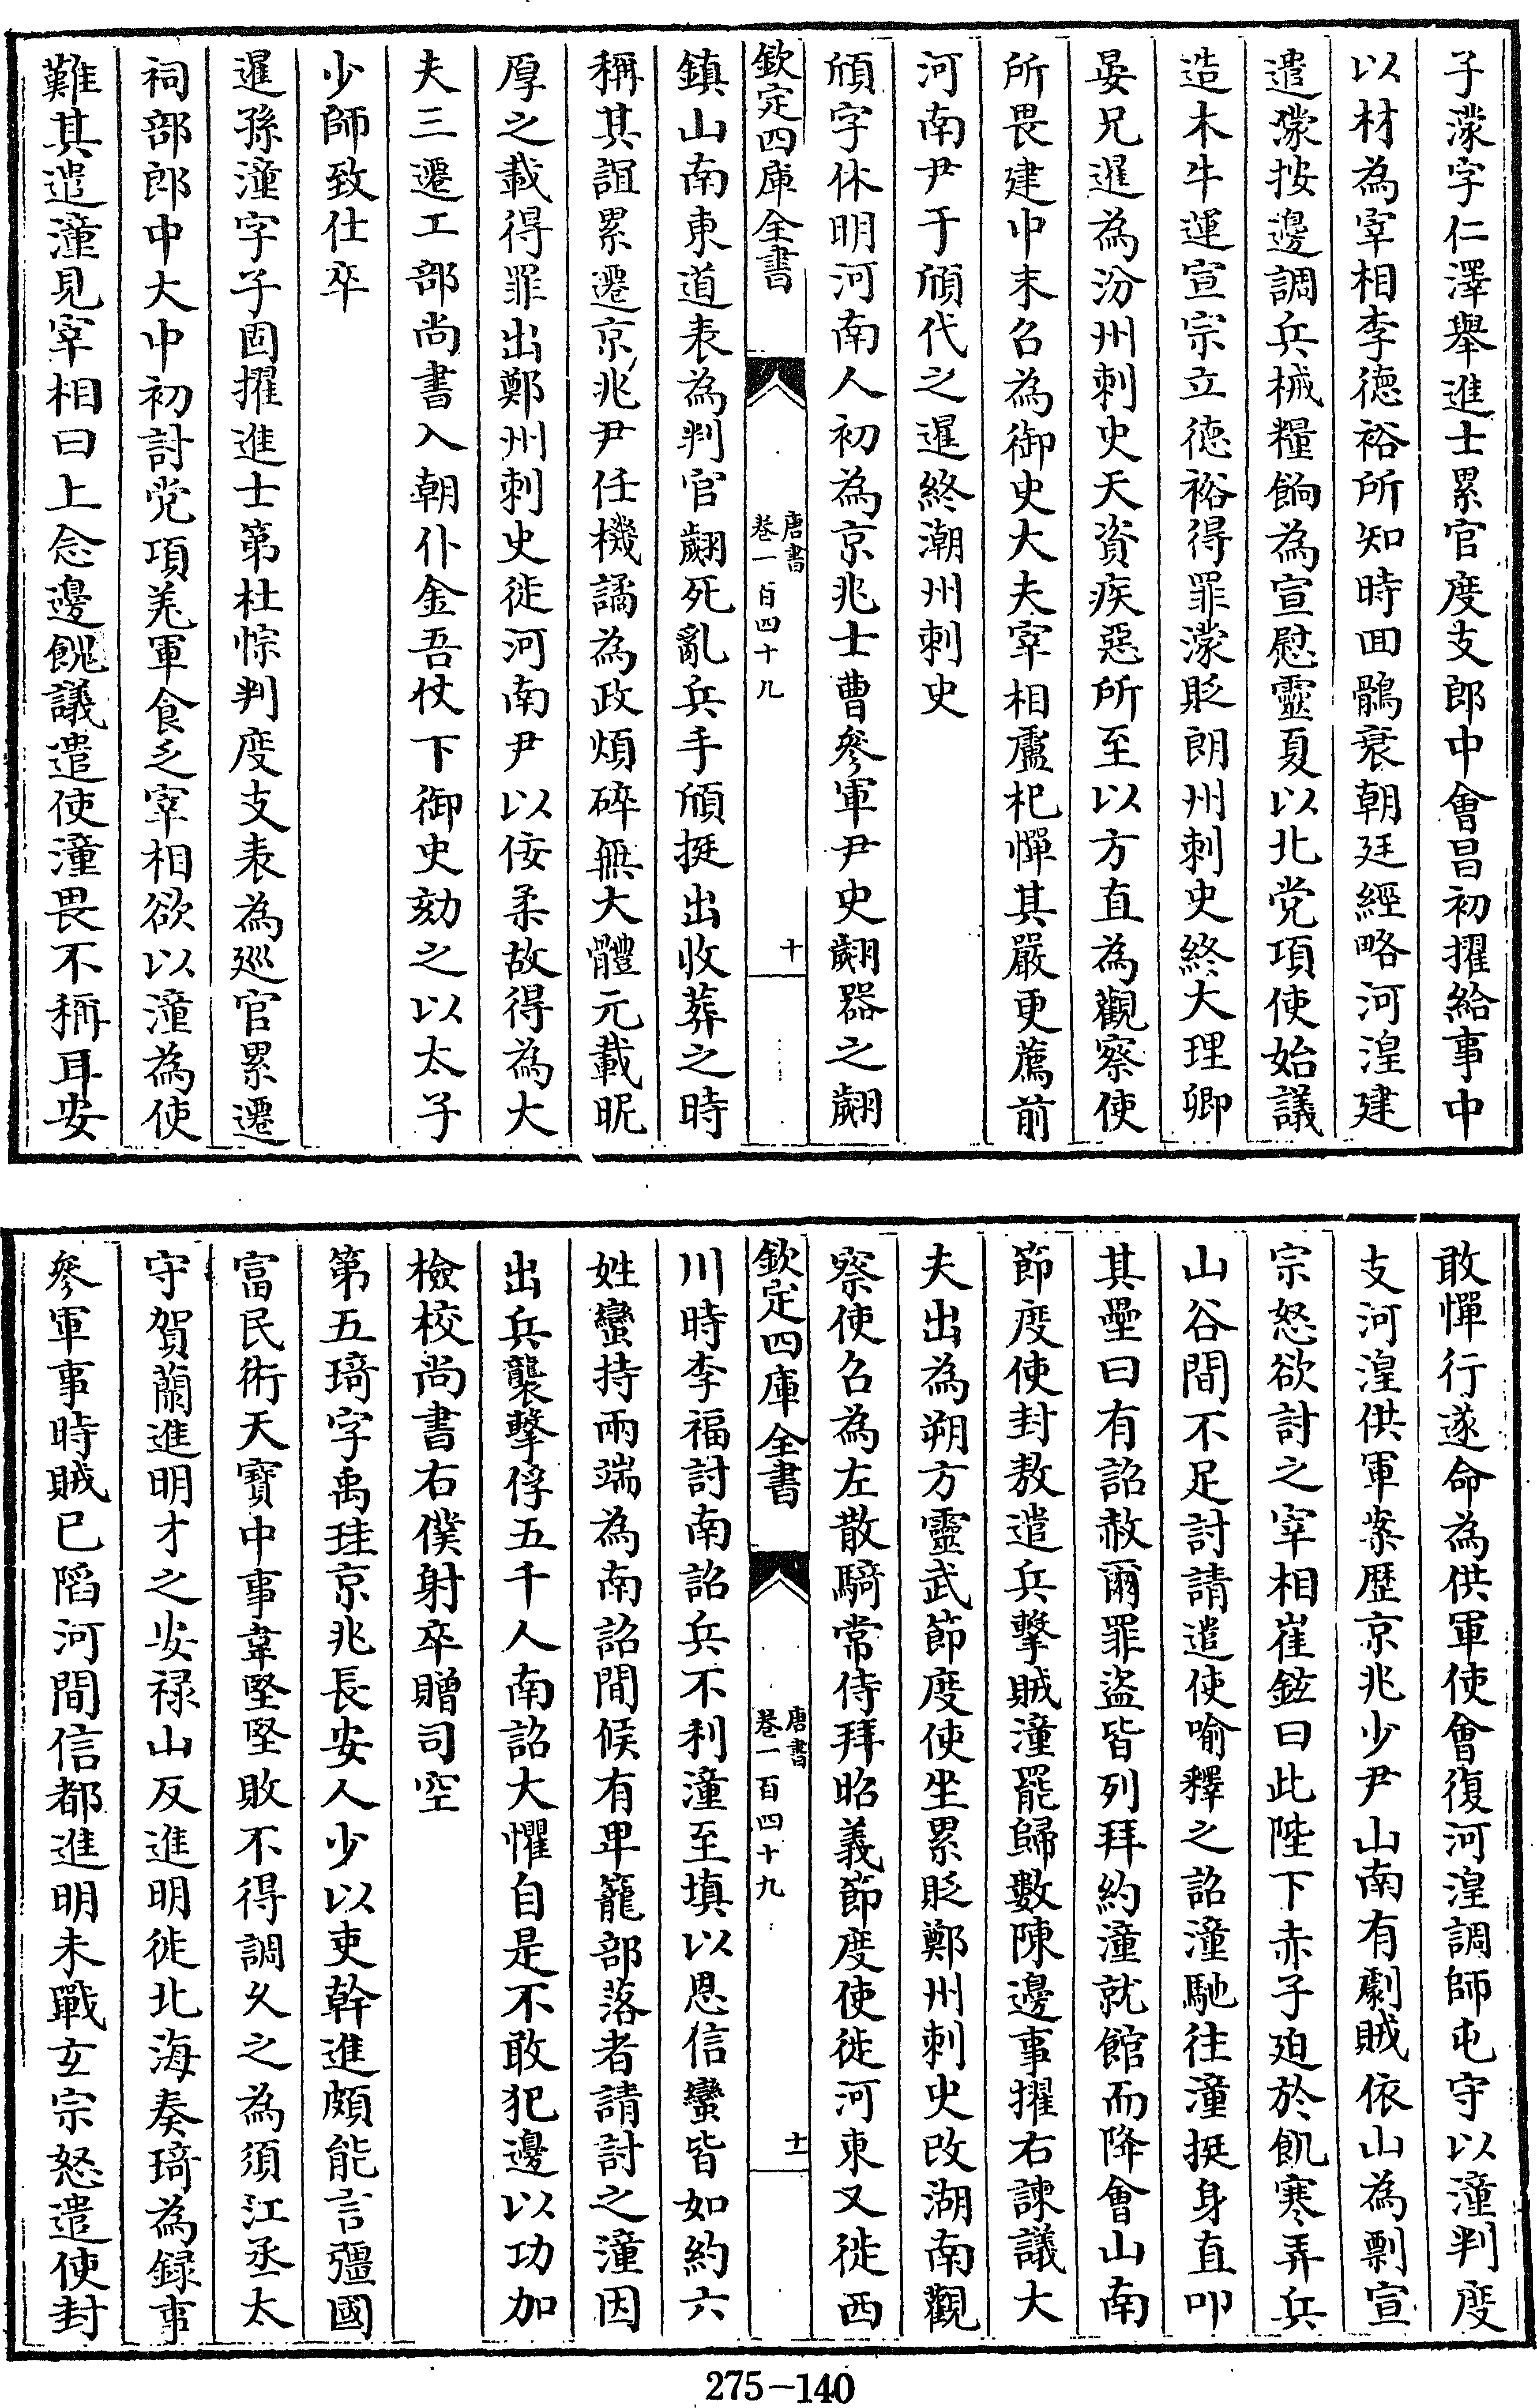 子濛字仁澤舉進士累官度支郎中會昌初擢給事中
以材為宰相李德裕所知時回鶻衰朝廷經略河湟建
遣濛按邊調兵械糧餉為宣慰靈夏以北党項使始議
造木牛運宣宗立德裕得罪濛貶朗州刺史終大理卿
晏兄暹為汾州刺史天資疾惡所至以方直為觀察使
所畏建中末召為御史大夫宰相盧杞憚其嚴更薦前
河南尹于頎代之暹終潮州刺史
頎字休明河南人初為京兆士曹參軍尹史翽器之翽
欽定四庫全書
唐書
卷一百四十九
十
鎮山南東道表為判官翽死亂兵手頎挺出收葬之時
稱其誼累遷京兆尹任機譎為政煩碎無大體元載昵
厚之載得罪出鄭州刺史徙河南尹以佞柔故得為大
夫三遷工部尚書入朝仆金吾仗下御史劾之以太子
少師致仕卒
暹孫潼字子固擢進士第杜悰判度支表為巡官累遷
祠部郎中大中初討党項羌軍食乏宰相欲以潼為使
難其遣潼見宰相曰上念邊餽議遣使潼畏不稱耳安
敢憚行遂命為供軍使會復河湟調師屯守以潼判度
支河湟供軍案歷京兆少尹山南有劇賊依山為剽宣
宗怒欲討之宰相崔鉉曰此陛下赤子迫於飢寒弄兵
山谷間不足討請遣使喻釋之詔潼馳往潼挺身直叩
其壘曰有詔赦爾罪盜皆列拜約潼就館而降會山南
節度使封敖遣兵擊賊潼罷歸數陳邊事擢右諫議大
夫出為朔方靈武節度使坐累貶鄭州刺史改湖南觀
察使召為左散騎常侍拜昭義節度使徙河東又徙西
欽定四庫全書
唐書
卷一百四十九
十一
川時李福討南詔兵不利潼至填以恩信蠻皆如約六
姓蠻持兩端為南詔間候有卑籠部落者請討之潼因
出兵襲擊俘五千人南詔大懼自是不敢犯邊以功加
檢校尚書右僕射卒贈司空
第五琦字禹珪京兆長安人少以吏幹進頗能言彊國
富民術天寶中事韋堅堅敗不得調久之為須江丞太
守賀蘭進明才之安祿山反進明徙北海奏琦為録事
參軍事時賊已䧟河間信都進明未戰玄宗怒遣使封
275-140